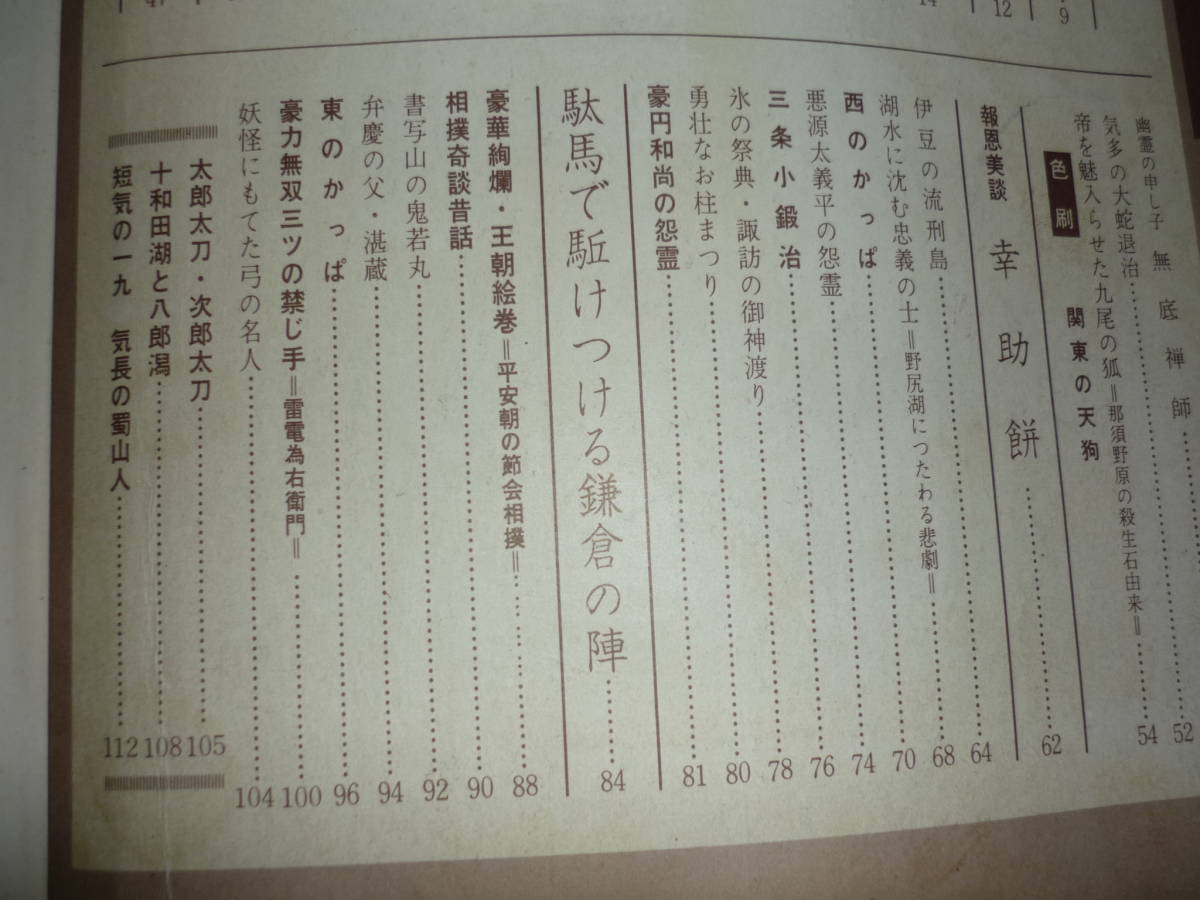 47
14
12
9
幽霊の申し子 無底禅師
気多の大蛇退治……52
帝を魅入らせた九尾の狐=那須野原の殺生石由来=……54
色刷 関東の天狗
報恩美談 幸助餅……62
伊豆の流刑島……64
湖水に沈む忠義の士=野尻湖につたわる悲劇=……68
西のかっぱ……70
悪源太義平の怨霊……74
三条小鍛治……76
氷の祭典・諏訪の御神渡り……78
勇壮なお柱まつり……80
豪円和尚の怨霊……81
駄馬で駈けつける鎌倉の陣……84
豪華絢爛・王朝絵巻=平安朝の節会相撲=……88
相撲奇談昔話……90
書写山の鬼若丸……92
弁慶の父・湛蔵……94
東のかっぱ……96
豪力無双三ツの禁じ手=雷電為右衛門=……100
妖怪にもてた弓の名人……104
太郎太刀・次郎太刀……105
十和田湖と八郎潟……108
短気の一九 気長の蜀山人……112